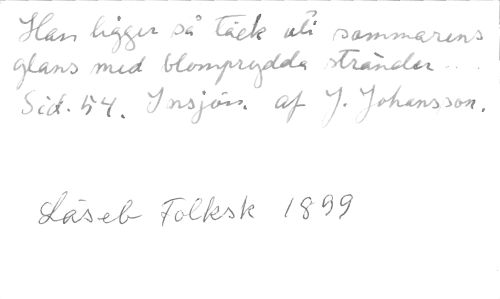 Han ligger så täck uti sommarens
glans med blomprydda stränder...
Sid. 54. Insjön. af J. Johansson.
Läseb Folksk 1899